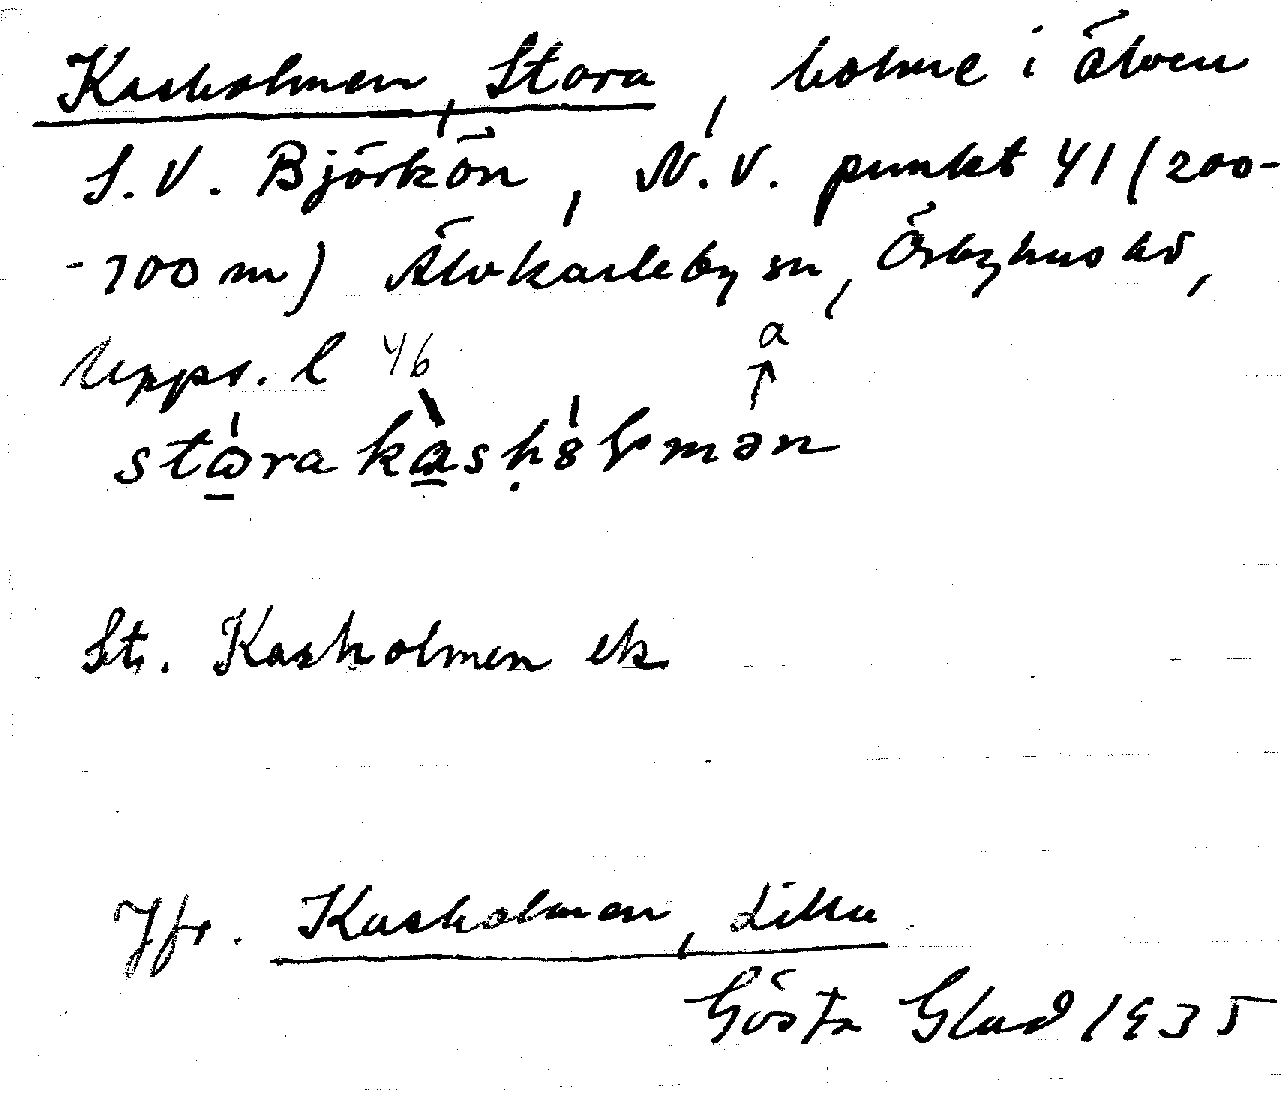 Kasholmen, Stora, holme i älven
S.V. Björkön, N.V. punkt 41 (200-
-700 m) Älvkarleby sn, Örbyhus hd,
Upps. l 46
a
stora kasholmən
St. Kasholmen ek
Jfr. Kasholmen, Lilla
Gösta Glad 1935